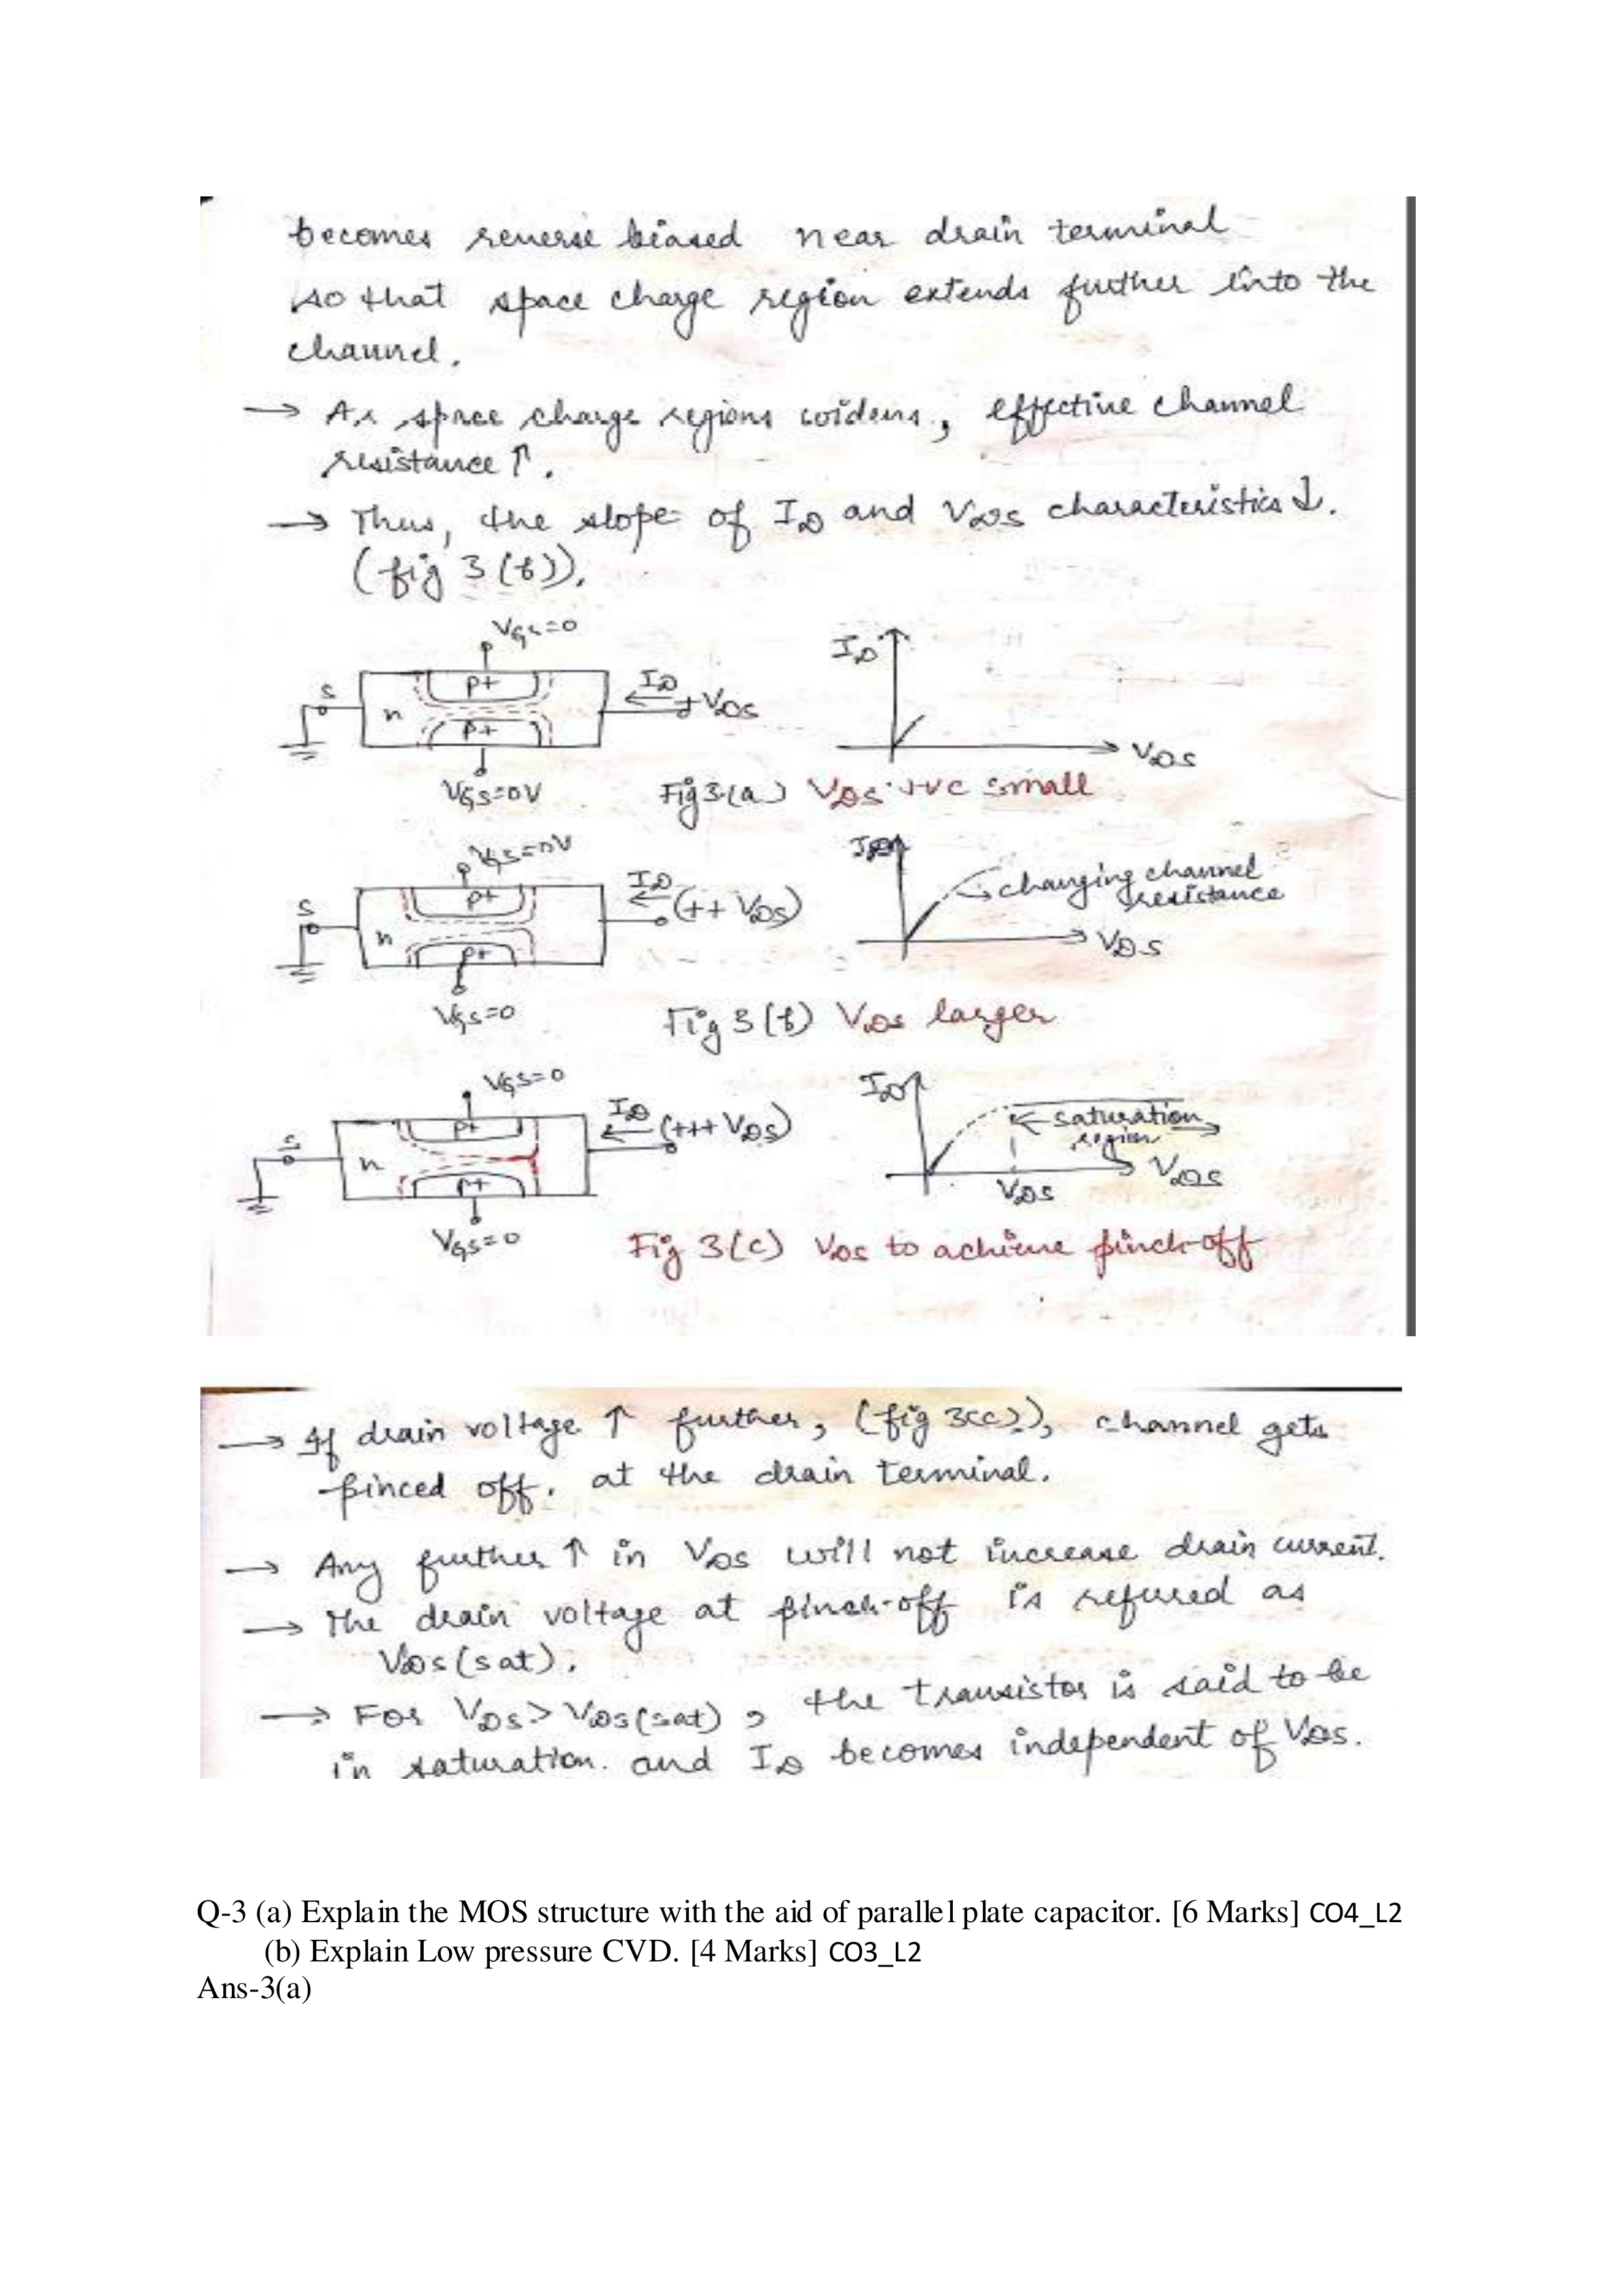 becomes reverse biased near drain terminal
so that space charge region extends further into the
channel.
→ As space charge regions widens, effective channel
resistance ↑.
→ Thus, the slope of ID and VDS characteristics ↓.
(fig 3(b)).
VGS=0
ID
S
p+
ID
+VDS
n
p+
VDS
VGS=0V
Fig 3(a) VDS +ve small
VGS=0V
ID
changing channel
resistance
S
p+
ID
(++ VDS)
n
p+
VDS
VGS=0
Fig 3(b) VDS larger
VGS=0
ID
S
p+
ID
(+++ VDS)
saturation
region
n
p+
VDS
VDS
VGS=0
Fig 3(c) VDS to achieve pinch-off
→ If drain voltage ↑ further, (fig 3(c)), channel gets
pinced off. at the drain terminal.
→ Any further ↑ in VDS will not increase drain current.
→ The drain voltage at pinch-off is refured as
VDS(sat).
→ For VDS > VDS(sat), the transistor is said to be
in saturation. and ID becomes independent of VDS.
Q-3 (a) Explain the MOS structure with the aid of parallel plate capacitor. [6 Marks] CO4_L2
(b) Explain Low pressure CVD. [4 Marks] CO3_L2
Ans-3(a)